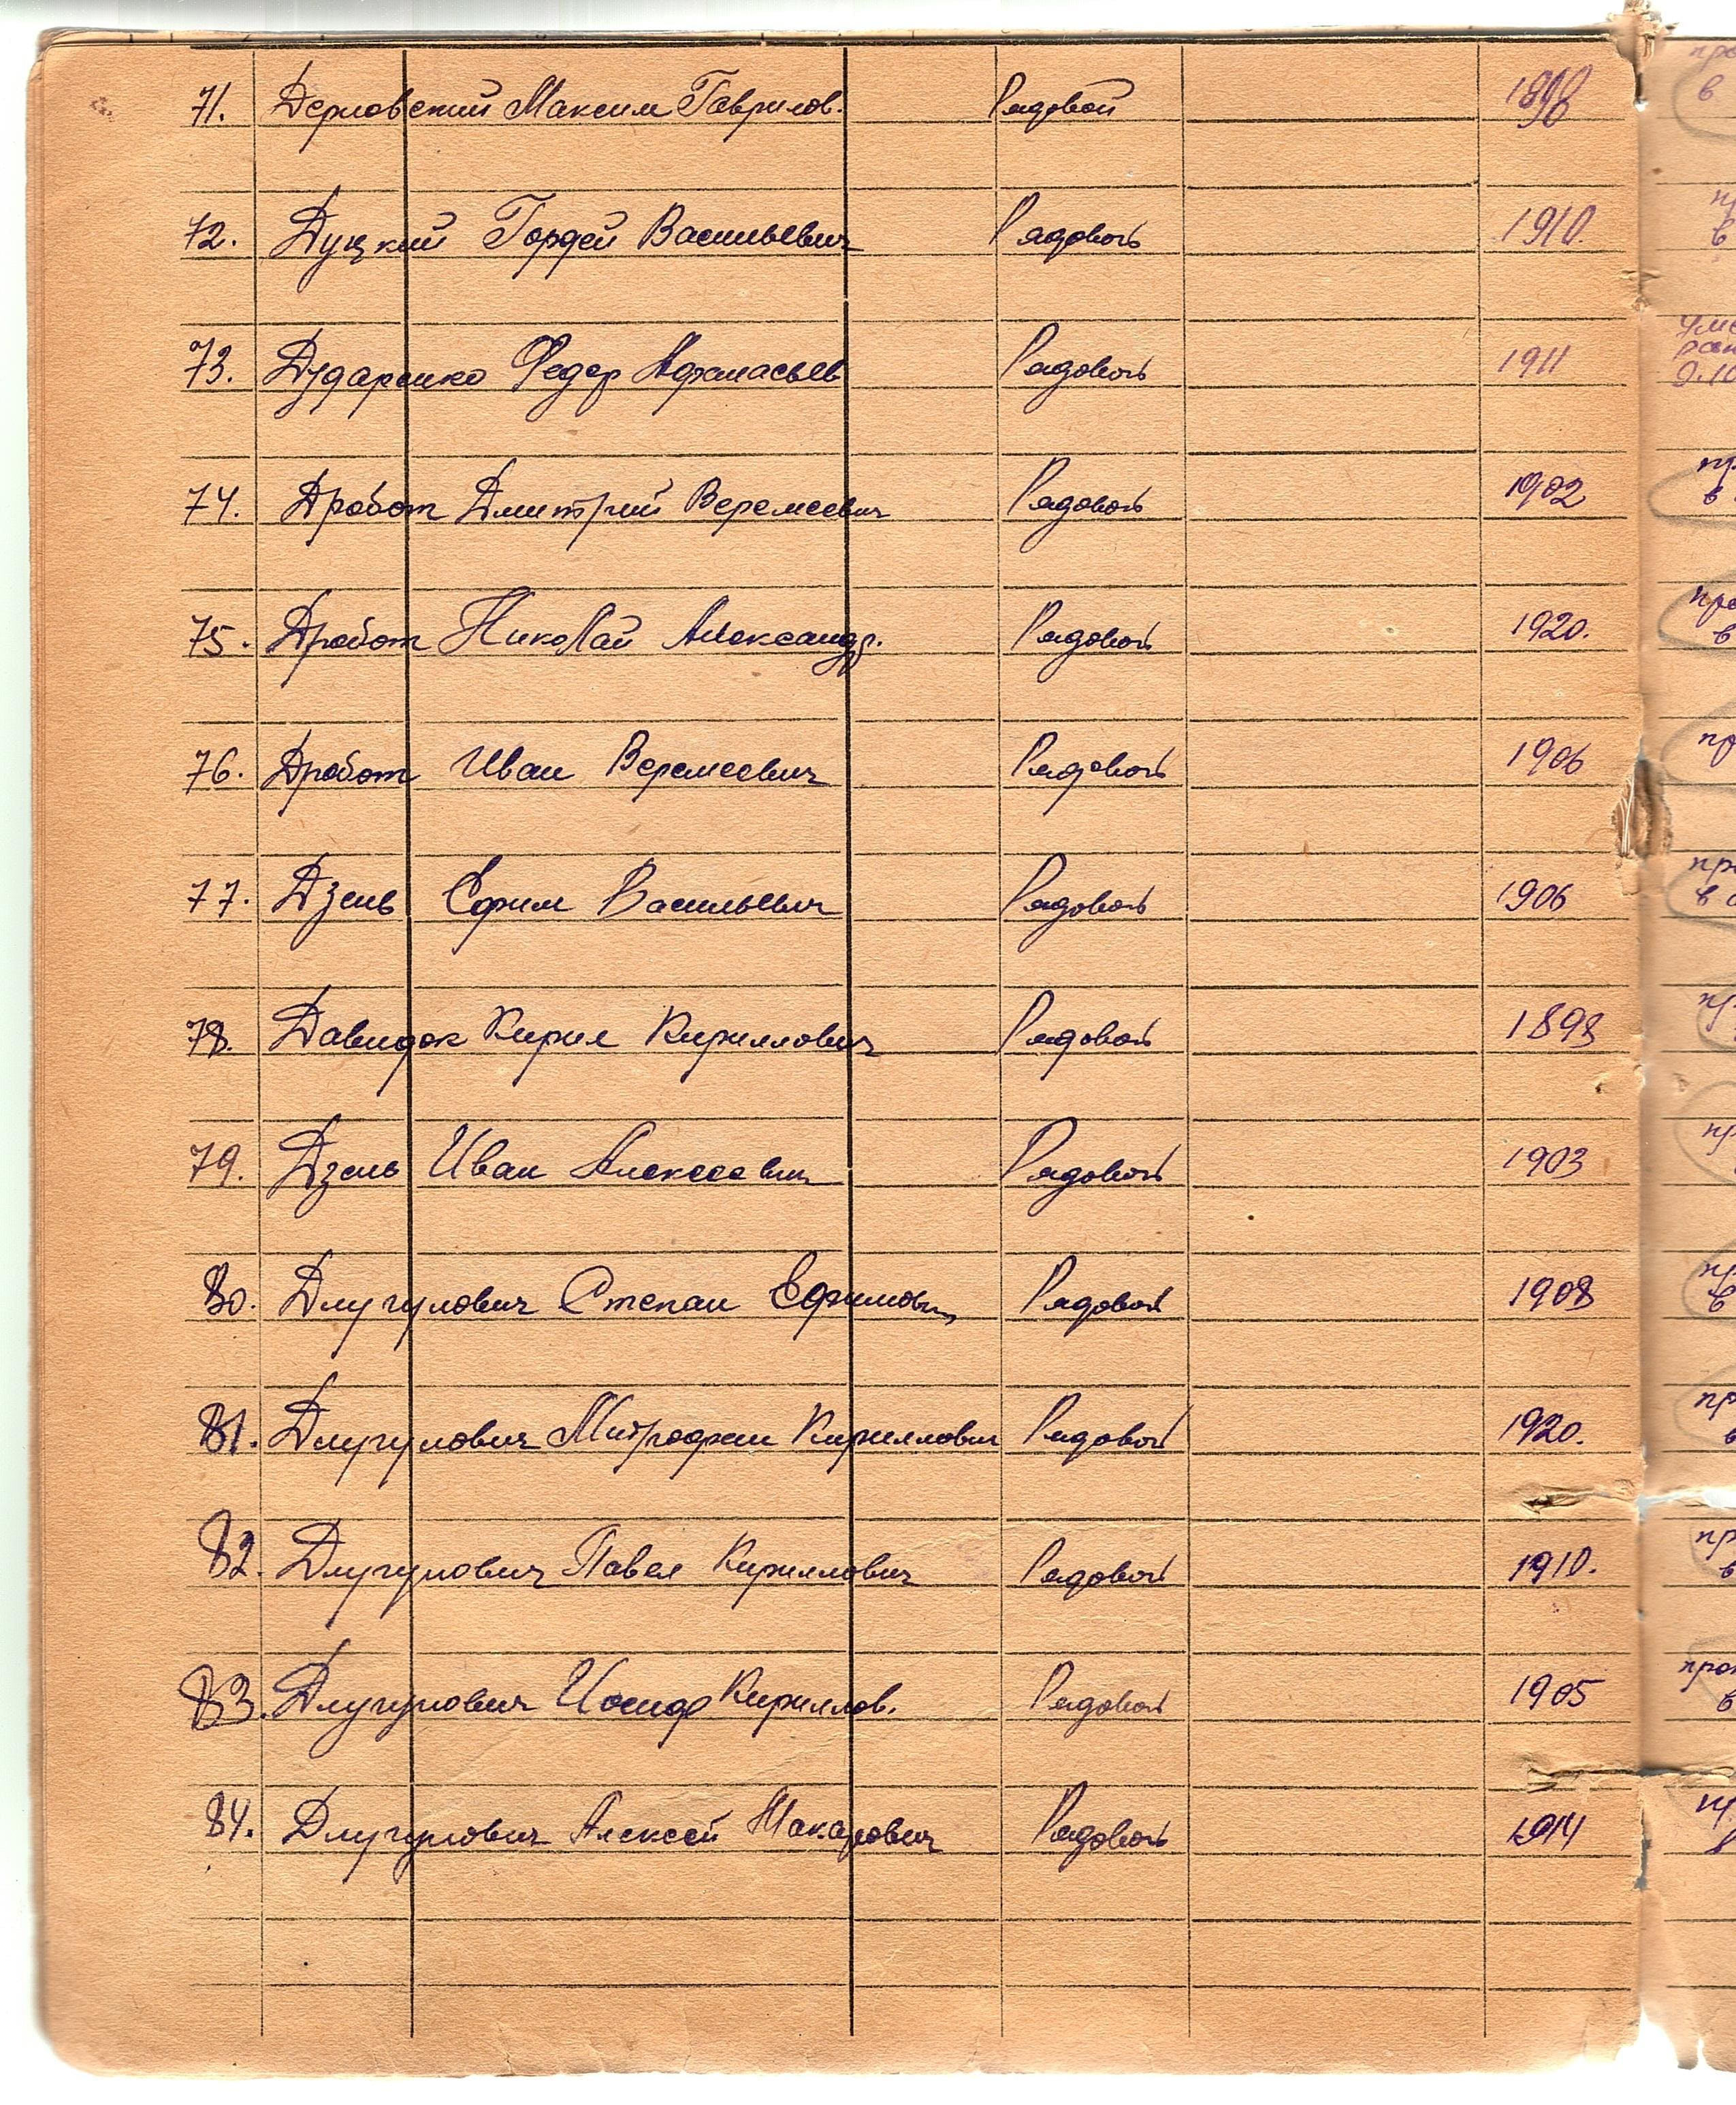 71. Дерновский Максим Гаврилов. Рядовой 1898
72. Дуцкий Гордей Васильевич Рядовой 1910.
73. Дударенко Федор Афанасьев Рядовой 1911
74. Дробот Дмитрий Веремеевич Рядовой 1902
75. Дробот Николай Александр. Рядовой 1920.
76. Дробот Иван Веремеевич Рядовой 1906
77. Дзень Ефим Васильевич Рядовой 1906
78. Давидок Кирил Кириллович Рядовой 1898
79. Дзень Иван Алексеевич Рядовой 1903
80. Длугунович Степан Ефимович Рядовой 1908
81. Длугунович Митрофан Кириллович Рядовой 1920.
82. Длугунович Павел Кириллович Рядовой 1910.
83. Длугунович Иосиф Кириллов. Рядовой 1905
84. Длугунович Алексей Макарович Рядовой 1914